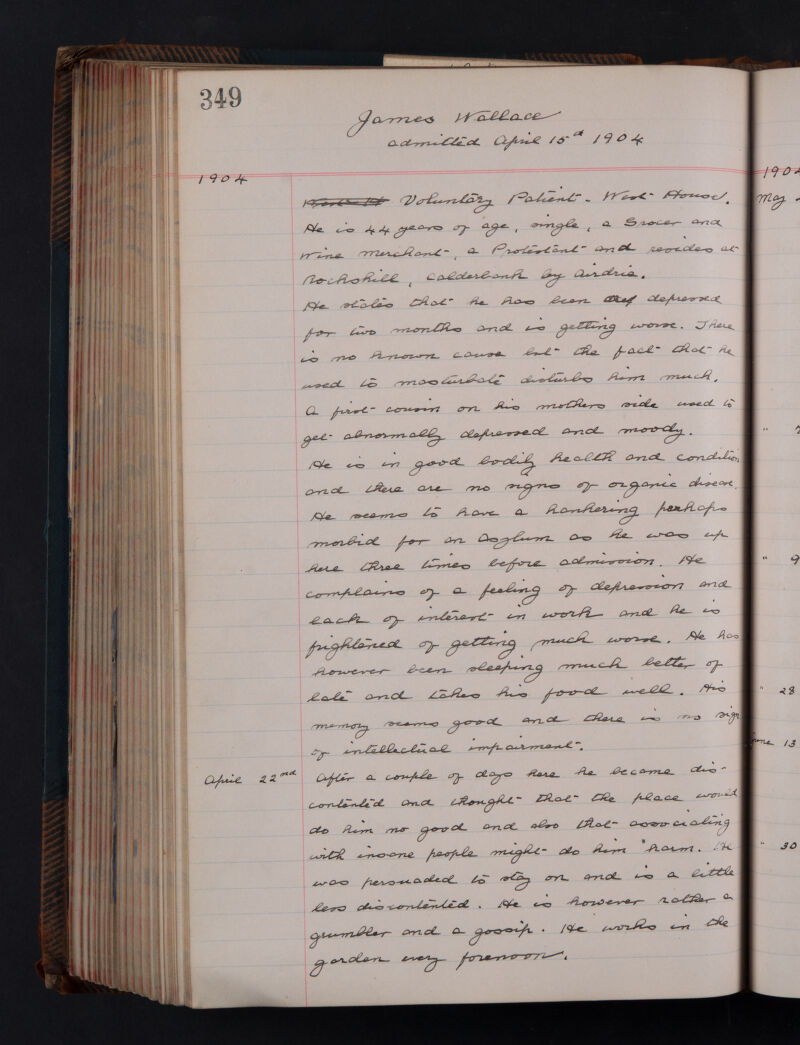 349
James Wallace
admitted April 15th 1904
1904
Voluntary Patient - West House.
He is 44 years of age, single, a Grocer and
Wine Merchant, a Protestant and resides at
Rochshill, Calderbank by Airdrie.
He states that he has been depressed
for two months and is getting worse. There
is no known cause but the fact that he
used to masturbate disturbs him much.
A first cousin on his mothers side used to
get abnormally depressed and moody.
He is in good bodily health and condition
and there are no signs of organic disease.
He seems to have a hankering perhaps
morbid for an Asylum as he was up
here three times before admission. He
complains of a feeling of depression and
lack of interest in work and he is
frightened of getting much worse. He has
however been sleeping much better of
late and takes his food well. His
memory seems good and there is no sign
of intellectual impairment.
April 22nd After a couple of days here he became dis-
contented and thought that the place would
do him no good and also that associating
with insane people might do him harm. He
was persuaded to stay on and is a little
less discontented. He is however rather a
grumbler and a gossip. He works in the
garden every forenoon.
190
May
"
" 9
" 28
June 13
" 30